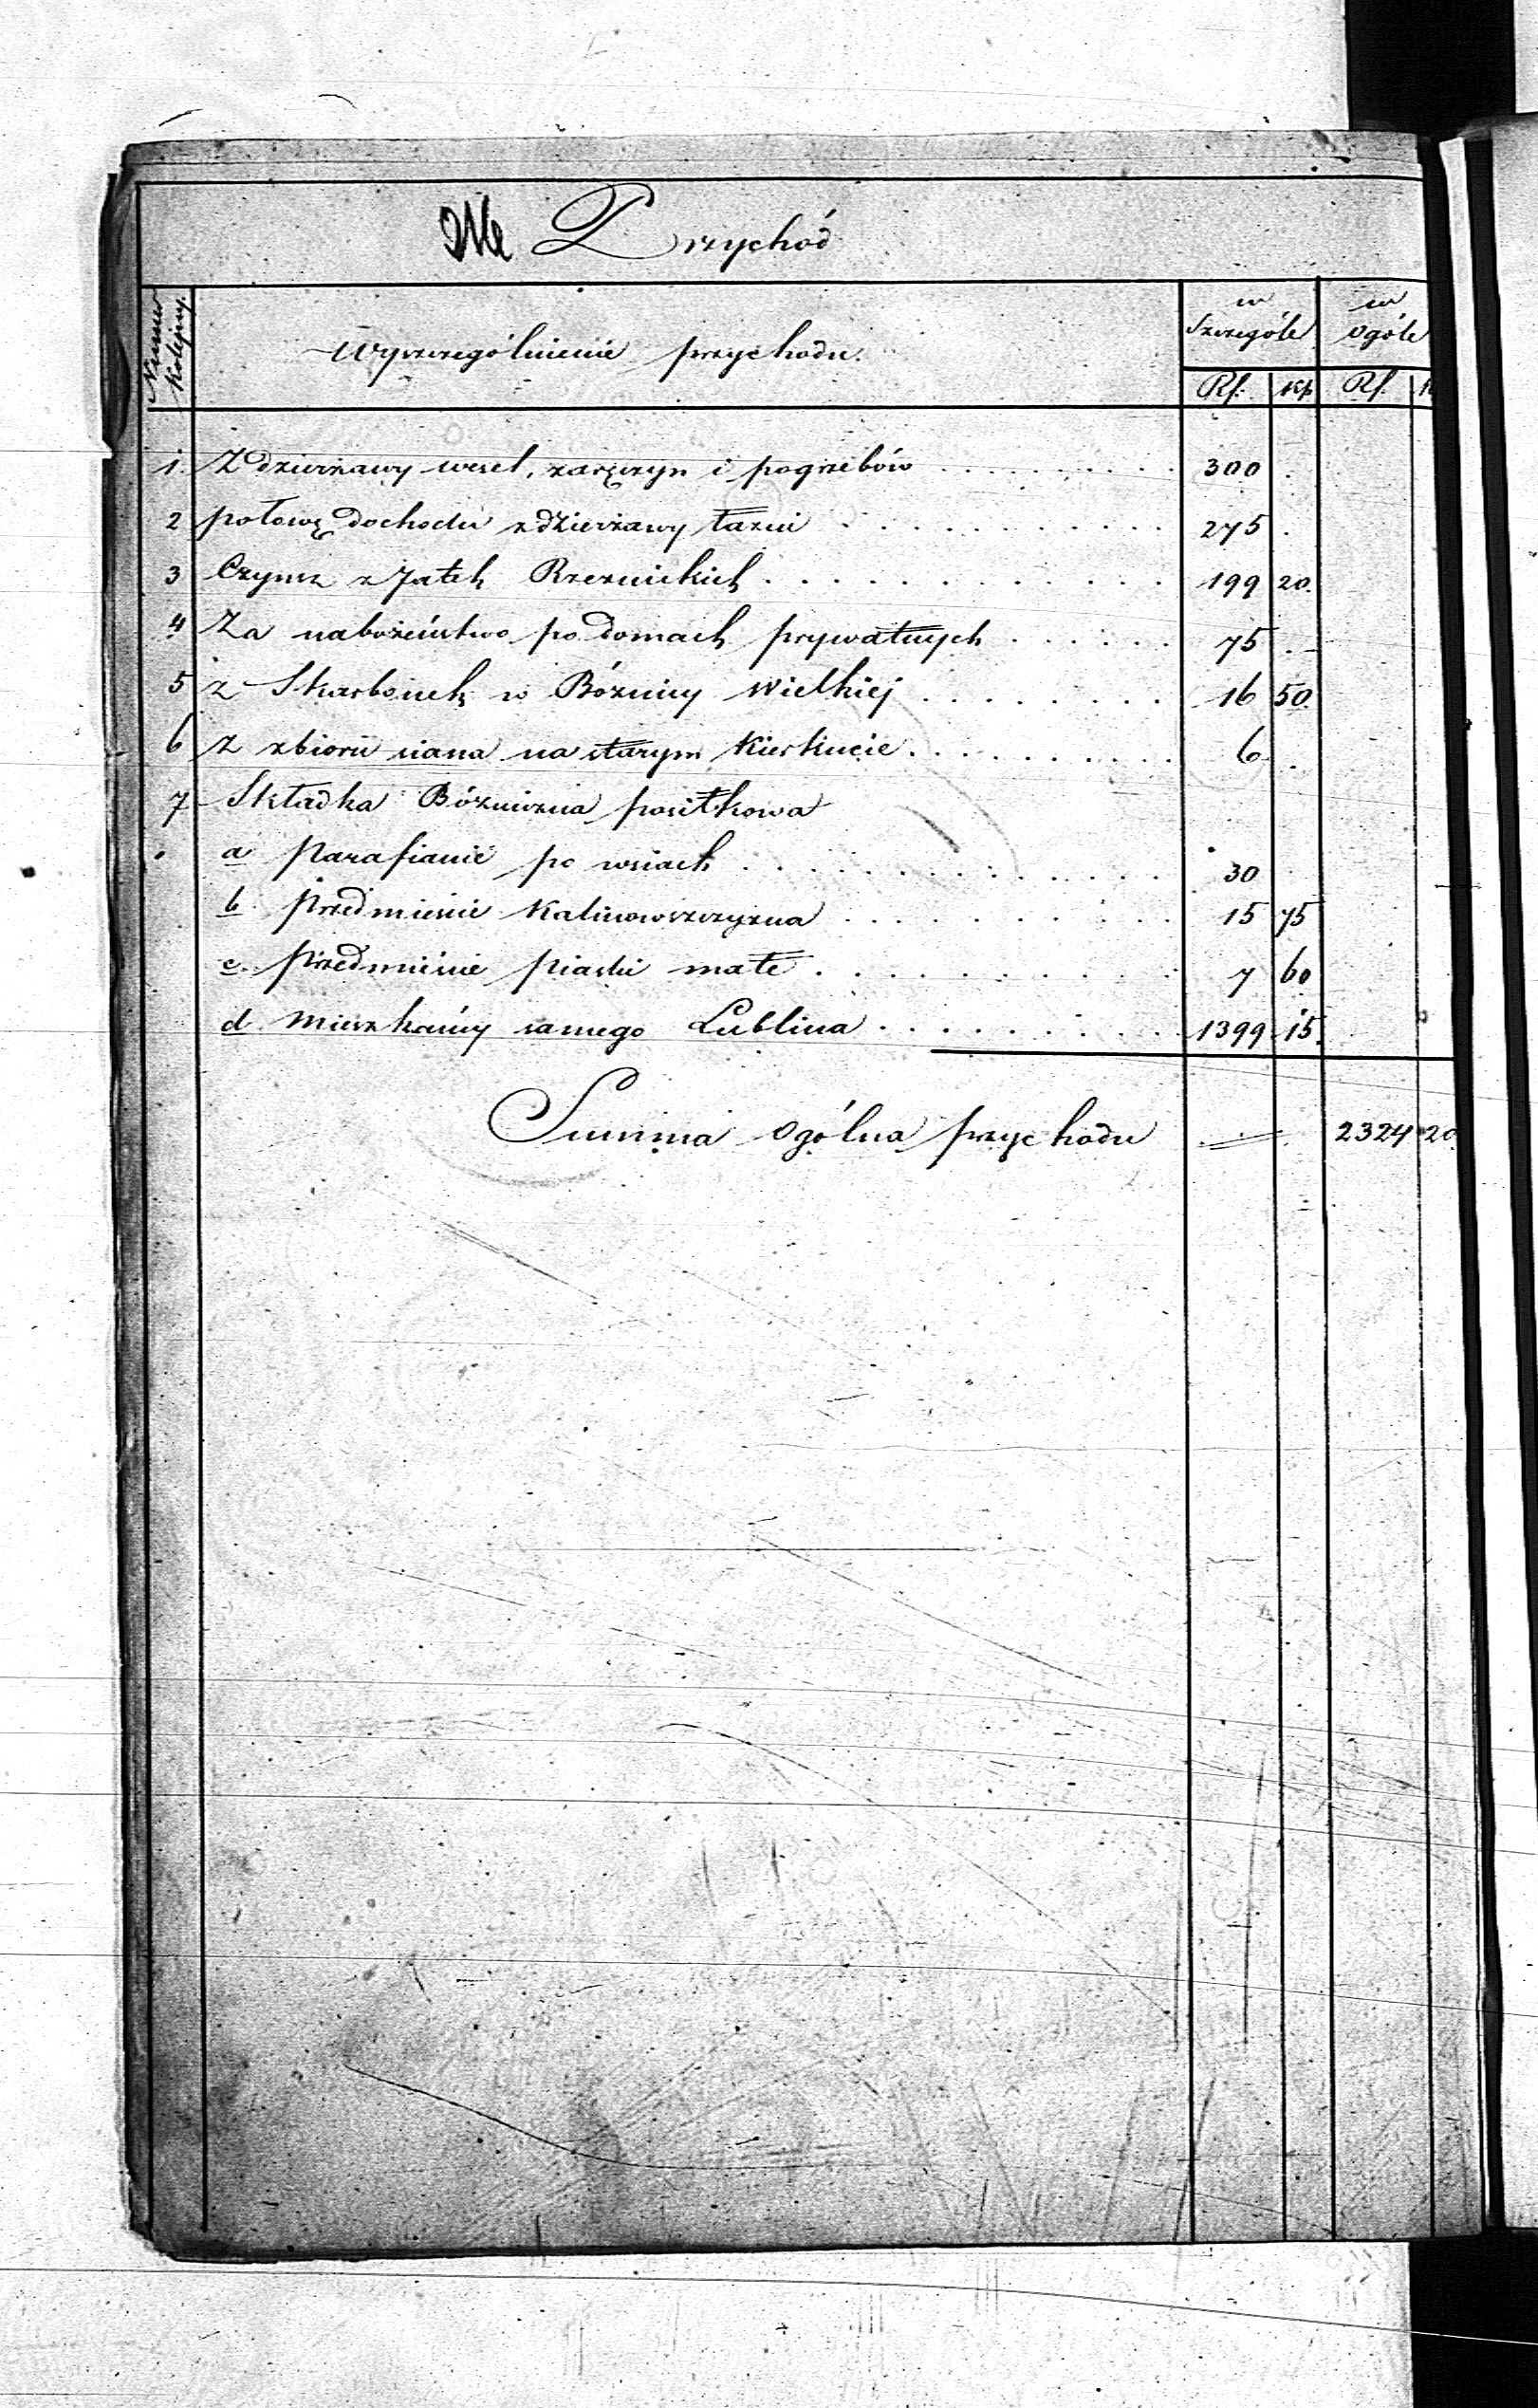 Przychód
Numer kolejny.
Wyszczególnienie przychodu.
w Szczególe
w Ogóle
Rs. Kp Rs. K
1. Z dzierżawy wesel, zaręczyn i pogrzebów . . . . . . . . . 300 .
2 połowę dochodu z dzierżawy łaźni . . . . . . . . . . . . 275 .
3 Czynsz z Jatek Rzeźnickich . . . . . . . . . . . . . 199 20.
4 Za nabożeństwo po domach prywatnych . . . . . . 75 .
5 z Skarbonek w Bóżnicy Wielkiej . . . . . . . . . 16 50
6 z zbioru siana na starym Kierkucie . . . . . . . . . . 6 .
7 Składka Bóżniczna posiłkowa
a Parafianie po wsiach . . . . . . . . . . . . . . 30 .
b. Przedmieście Kalinowszczyzna . . . . . . . . . . . 15 75
c. Przedmieście Piaski małe . . . . . . . . . . . 7 60
d. Mieszkańcy samego Lublina . . . . . . . . . . 1399 15.
Summa Ogólna przychodu 2324 20